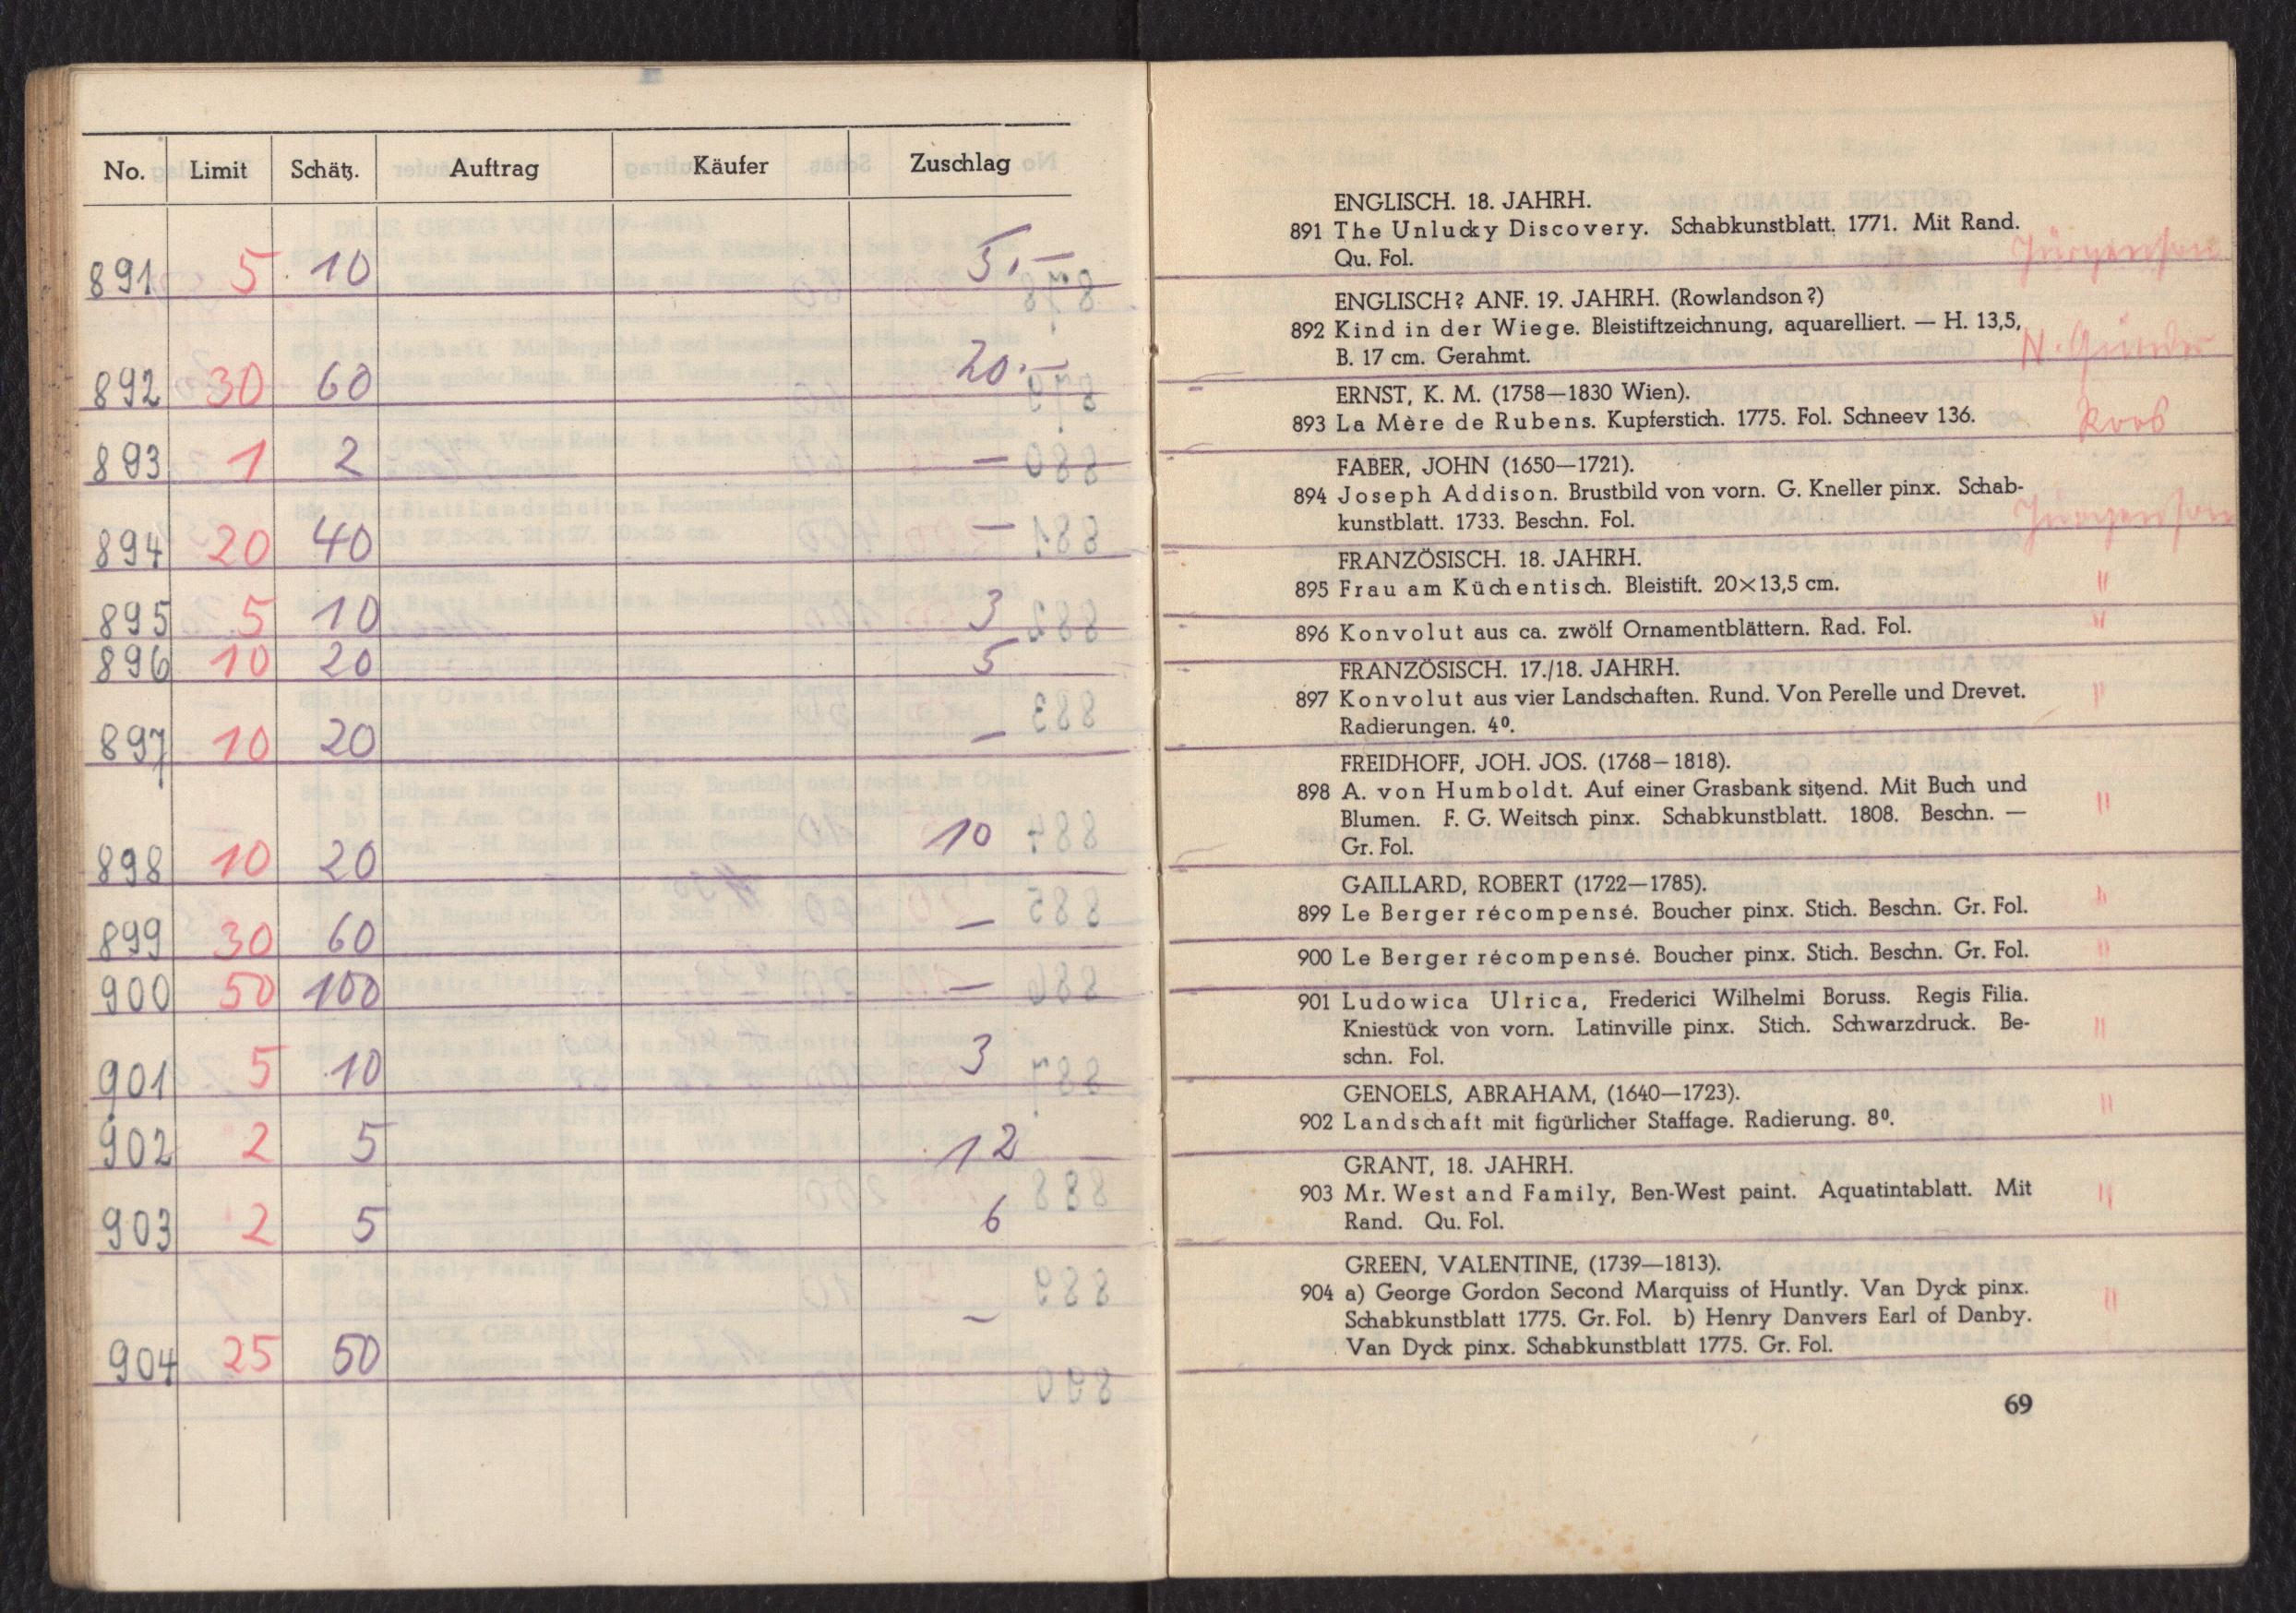 No. Limit Schätz. Auftrag Käufer Zuschlag
891 5 10 5.—
892 30 60 20.—
893 1 2 —
894 20 40 —
895 5 10 3
896 10 20 5
897 10 20 —
898 10 20 10
899 30 60 —
900 50 100 —
901 5 10 3
902 2 5 12
903 2 5 6
904 25 50 —
ENGLISCH. 18. JAHRH.
891 The Unlucky Discovery. Schabkunstblatt. 1771. Mit Rand.
Qu. Fol. Jürgenson
ENGLISCH? ANF. 19. JAHRH. (Rowlandson?)
892 Kind in der Wiege. Bleistiftzeichnung, aquarelliert. — H. 13,5,
B. 17 cm. Gerahmt. N.
ERNST, K. M. (1758—1830 Wien).
893 La Mère de Rubens. Kupferstich. 1775. Fol. Schneev 136. Roob
FABER, JOHN (1650—1721).
894 Joseph Addison. Brustbild von vorn. G. Kneller pinx. Schab-
kunstblatt. 1733. Beschn. Fol. Jürgenson
FRANZÖSISCH. 18. JAHRH.
895 Frau am Küchentisch. Bleistift. 20×13,5 cm. "
896 Konvolut aus ca. zwölf Ornamentblättern. Rad. Fol. "
FRANZÖSISCH. 17./18. JAHRH.
897 Konvolut aus vier Landschaften. Rund. Von Perelle und Drevet. "
Radierungen. 4⁰.
FREIDHOFF, JOH. JOS. (1768—1818).
898 A. von Humboldt. Auf einer Grasbank sitzend. Mit Buch und "
Blumen. F. G. Weitsch pinx. Schabkunstblatt. 1808. Beschn. —
Gr. Fol.
GAILLARD, ROBERT (1722—1785).
899 Le Berger récompensé. Boucher pinx. Stich. Beschn. Gr. Fol. "
900 Le Berger récompensé. Boucher pinx. Stich. Beschn. Gr. Fol. "
901 Ludowica Ulrica, Frederici Wilhelmi Boruss. Regis Filia.
Kniestück von vorn. Latinville pinx. Stich. Schwarzdruck. Be- "
schn. Fol.
GENOELS, ABRAHAM, (1640—1723).
902 Landschaft mit figürlicher Staffage. Radierung. 8⁰. "
GRANT, 18. JAHRH.
903 Mr. West and Family, Ben-West paint. Aquatintablatt. Mit "
Rand. Qu. Fol.
GREEN, VALENTINE, (1739—1813).
904 a) George Gordon Second Marquiss of Huntly. Van Dyck pinx. "
Schabkunstblatt 1775. Gr. Fol. b) Henry Danvers Earl of Danby.
Van Dyck pinx. Schabkunstblatt 1775. Gr. Fol.
69